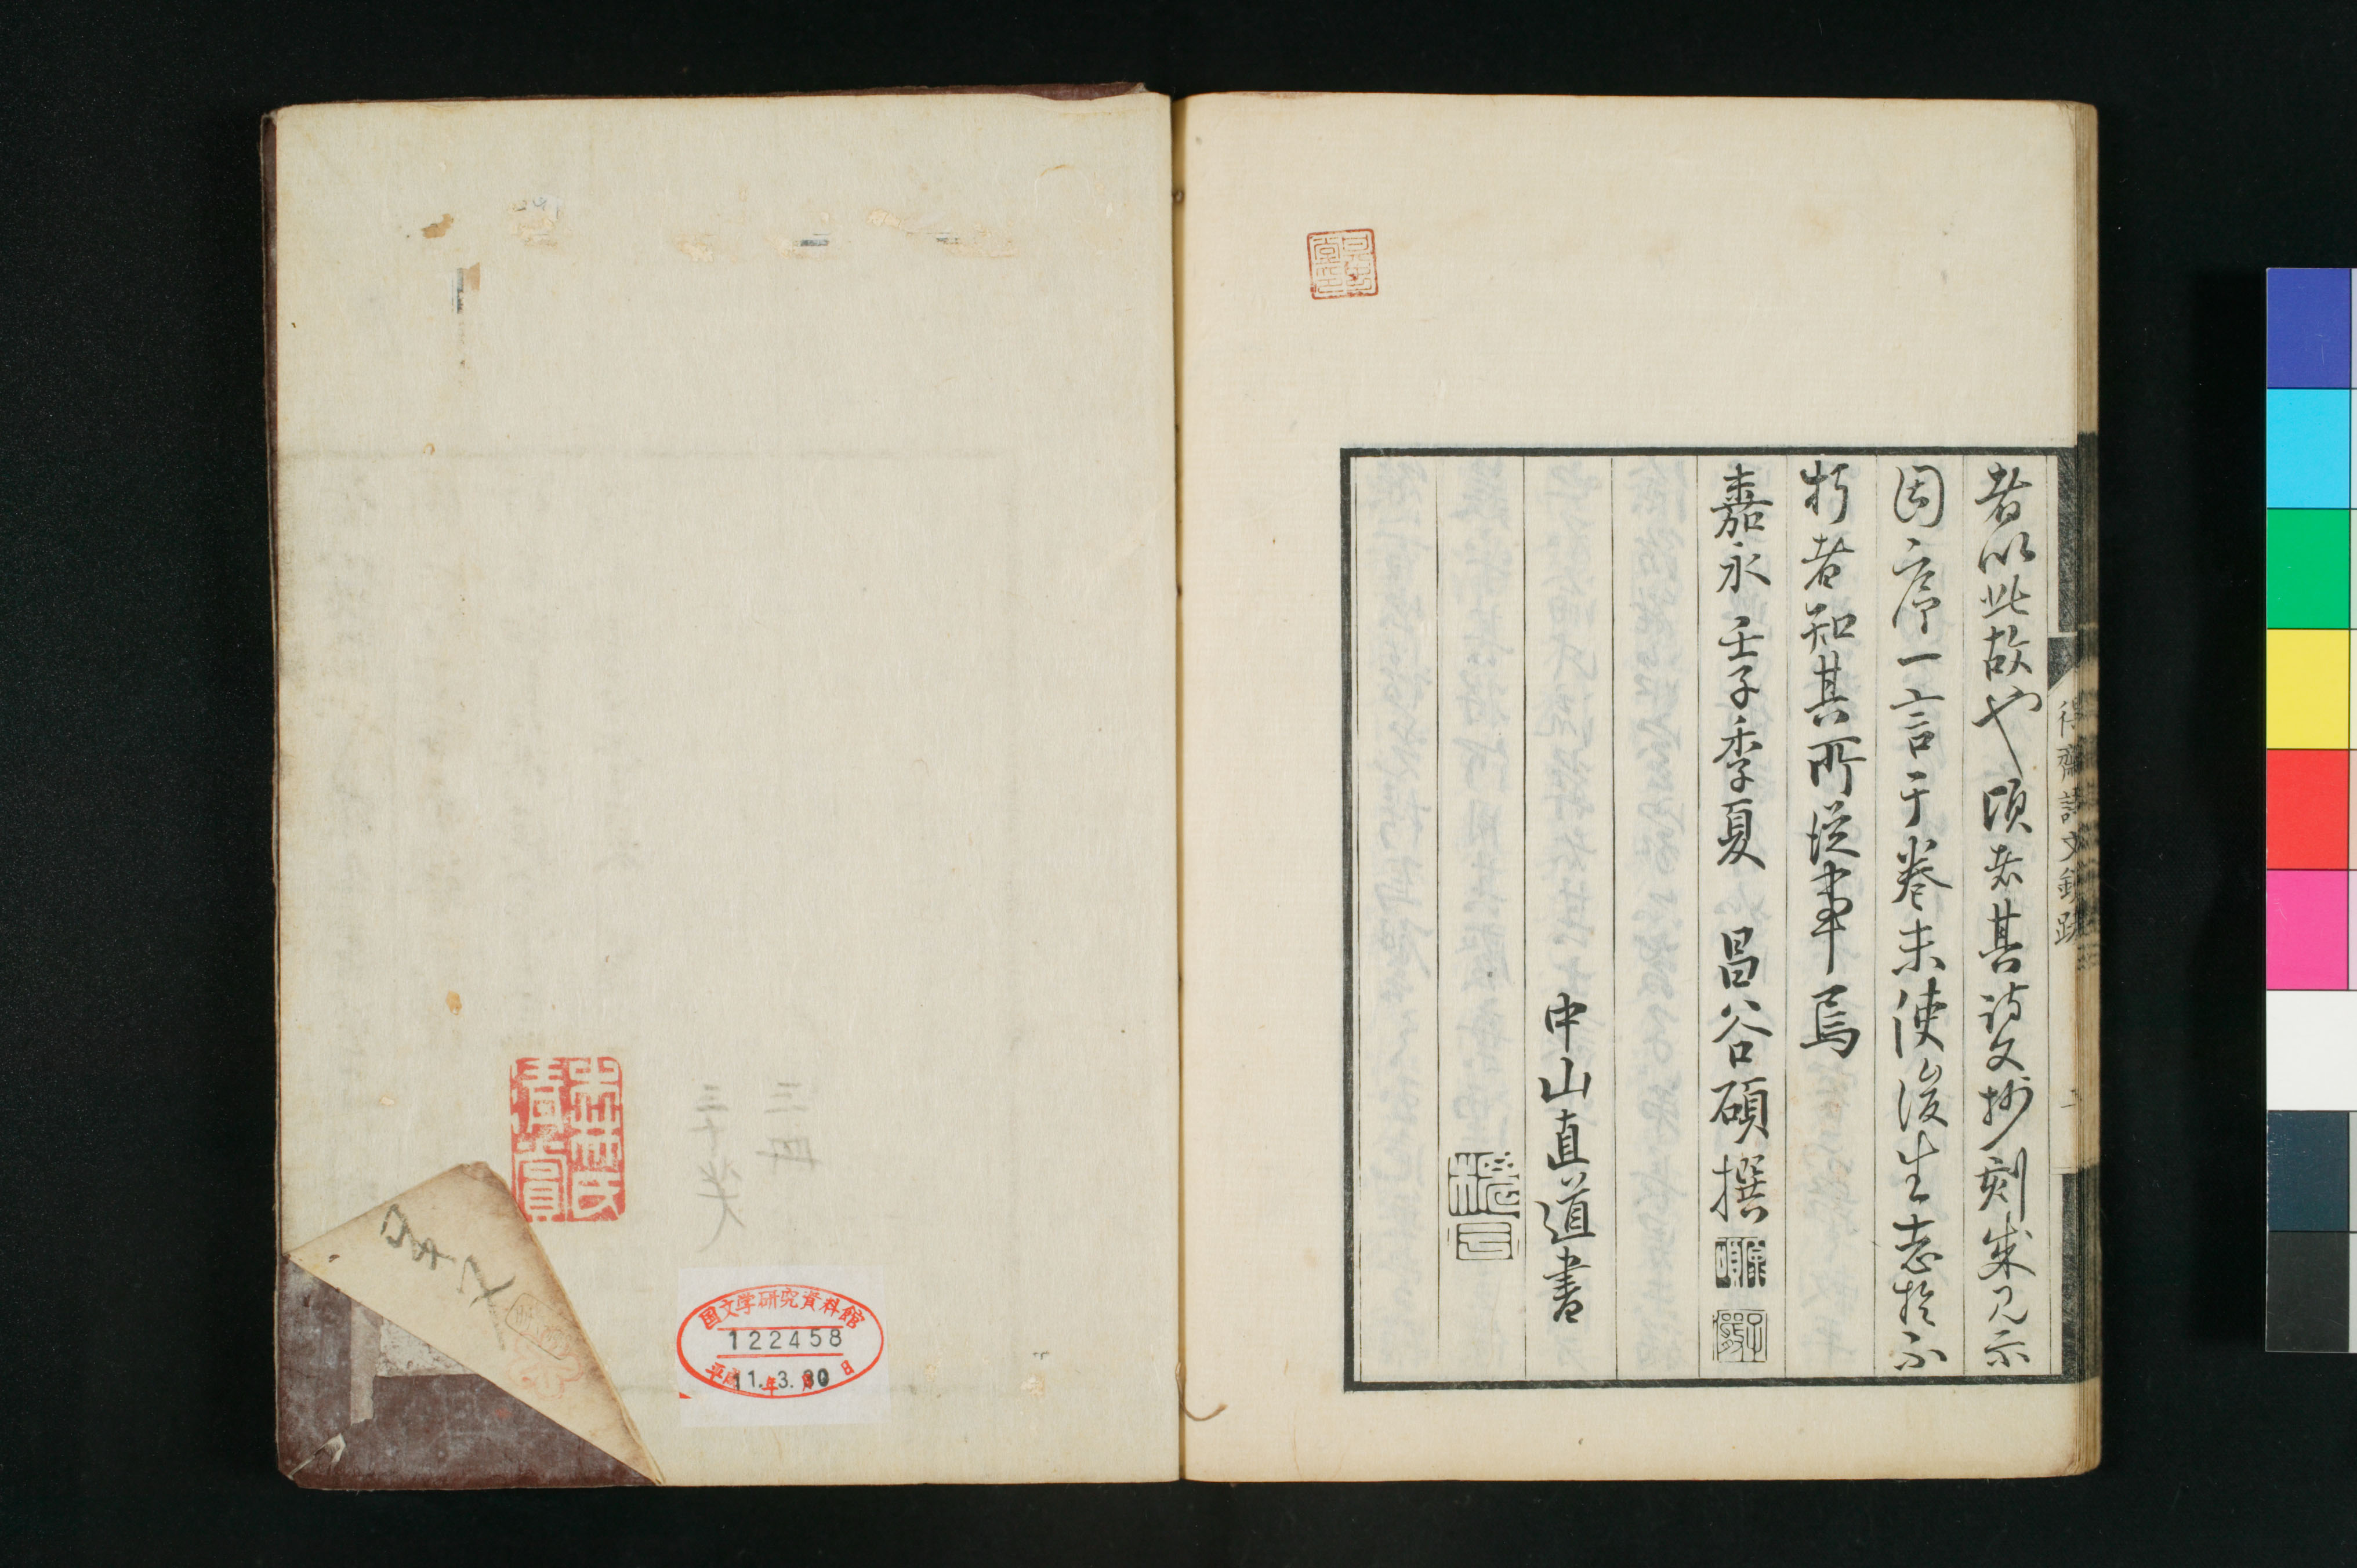 者以此故也頃者其詩文抄刻成見示
因序一言于巻末使後生志於不
朽者知其所従事焉
嘉永壬子季夏 昌谷碩撰
中山直道書
得齋詩文鈔跋
二
国文学研究資料館
122458
平成11年3月30日